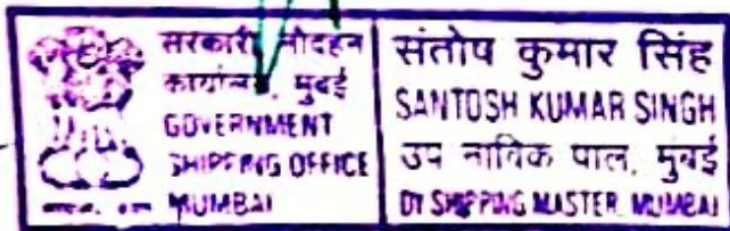 सरकारी नौवहन
कार्यालय, मुंबई
GOVERNMENT
SHIPPING OFFICE
MUMBAI
संतोष कुमार सिंह
SANTOSH KUMAR SINGH
उप नाविक पाल, मुंबई
DY SHIPPING MASTER MUMBAI